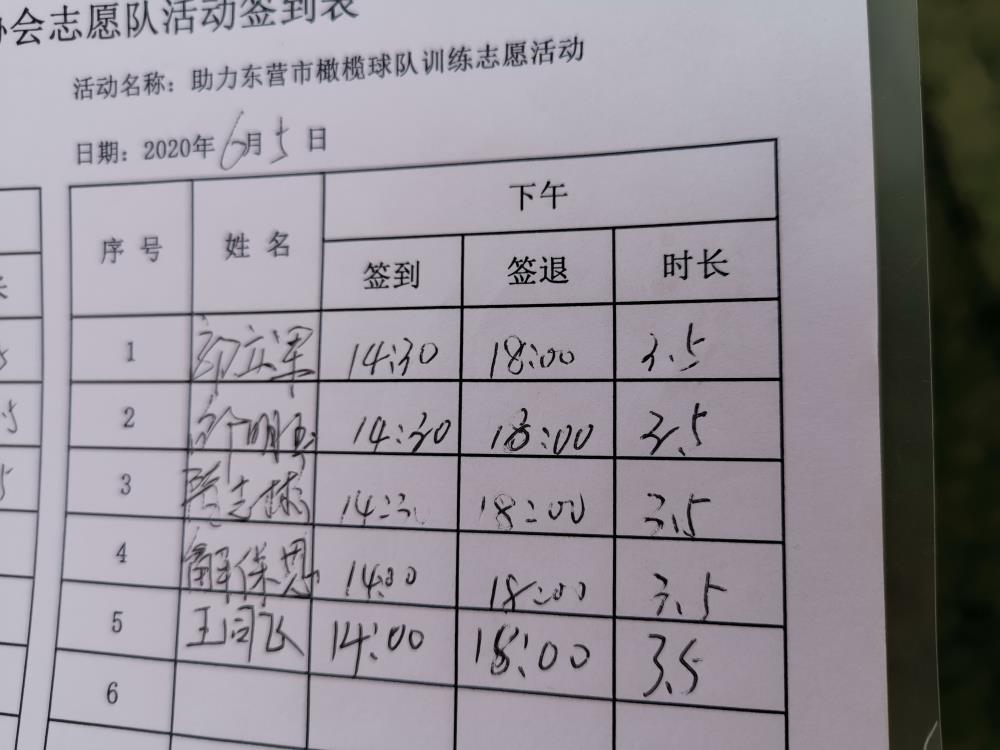 协会志愿队活动签到表
活动名称：助力东营市橄榄球队训练志愿活动
日期：2020年6月5日
下午
序号 姓名 签到 签退 时长
1 14:30 18:00 3.5
2 14:30 18:00 3.5
3 14:30 18:00 3.5
4 解保 14:00 18:00 3.5
5 王同飞 14:00 18:00 3.5
6